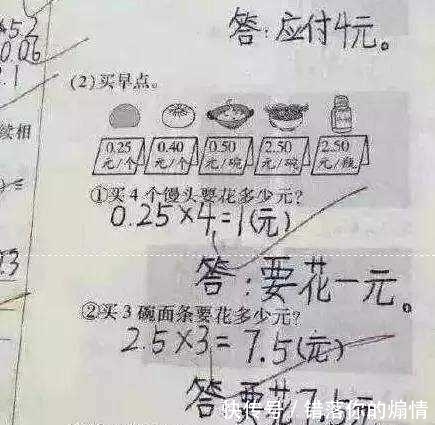 452
0.06
2.1
续相
2.3
答:应付4元。
(2)买早点。
0.25 元/个 0.40 元/个 0.50 元/碗 2.50 元/碗 2.50 元/瓶
①买4个馒头要花多少元?
0.25×4=1(元)
答:要花一元。
②买3碗面条要花多少元?
2.5×3=7.5(元)
答要花7.5元
快传号/错落你的煽情